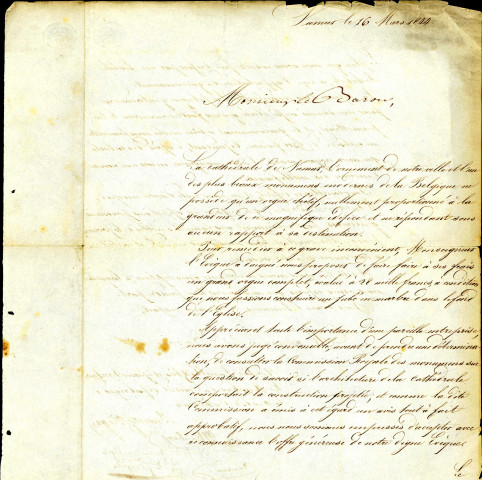 Namur le 16 Mars 1844
Monsieur le Baron,
La cathédrale de Namur, l'ornement de notre ville et l'un
des plus beaux monumens modernes de la Belgique ne
possède qu'un orgue chétif, nullement proportionné à la
grandeur de ce magnifique édifice et ne répondant sous
aucun rapport à sa destination.
Pour remédier à ce grave inconvénient, Monseigneur
l'Evêque a daigné nous proposer de faire faire à ses frais
un grand orgue complet, évalué à 20 mille francs, à condition
que nous fassions construire un jubé en marbre dans le fond
de l'Eglise.
Appréciant toute l'importance d'une pareille entreprise
nous avons jugé convenable, avant de prendre une détermina-
tion, de consulter la Commission Royale des monumens sur
la question de savoir si l'architecture de la cathédrale
comportait la construction projetée, et comme la dite
Commission a émis à cet égard un avis tout à fait
approbatif, nous nous sommes empressés d'accepter avec
reconnaissance l'offre généreuse de notre digne Evêque.
Le